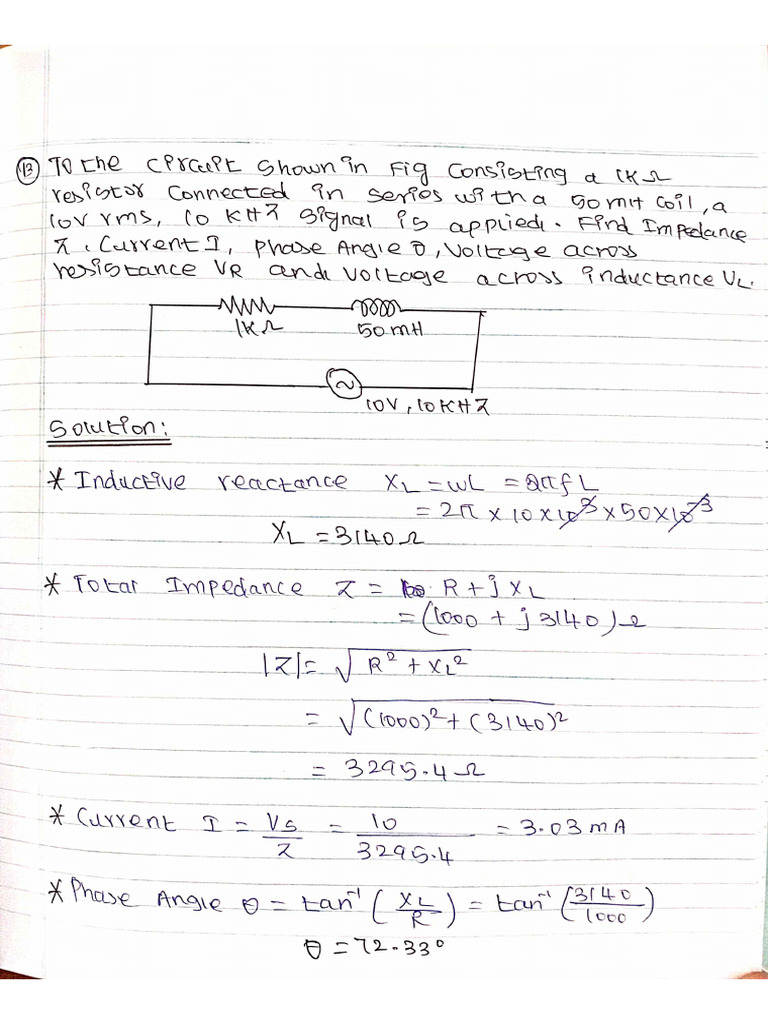 (13) To the circuit shown in Fig consisting a 1KΩ
resistor connected in series with a 50mH coil, a
10V rms, 10 KHZ signal is applied. Find Impedance
Z, Current I, Phase Angle θ, Voltage across
resistance VR and Voltage across inductance VL.
1KΩ
50mH
10V, 10KHZ
Solution:
* Inductive reactance XL = ωL = 2πfL
= 2π × 10 × 10³ × 50 × 10⁻³
XL = 3140Ω
* Total Impedance Z = R + j XL
= (1000 + j 3140) Ω
|Z| = √(R² + XL²)
= √((1000)² + (3140)²)
= 3295.4 Ω
* Current I = Vs/Z = 10/3295.4 = 3.03 mA
* Phase Angle θ = tan⁻¹ (XL/R) = tan⁻¹ (3140/1000)
θ = 72.33°